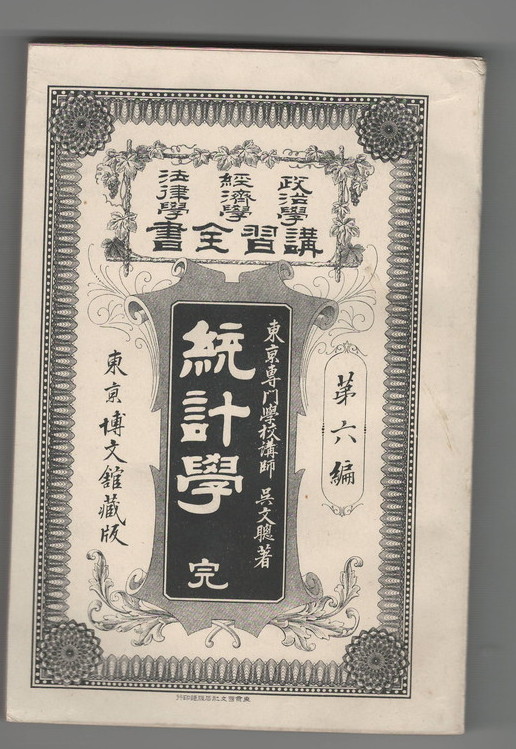 政治學
經濟學
法律學
講習全書
第六編
東京專門學校講師 吳文聰著
統計學 完
東京博文館藏版